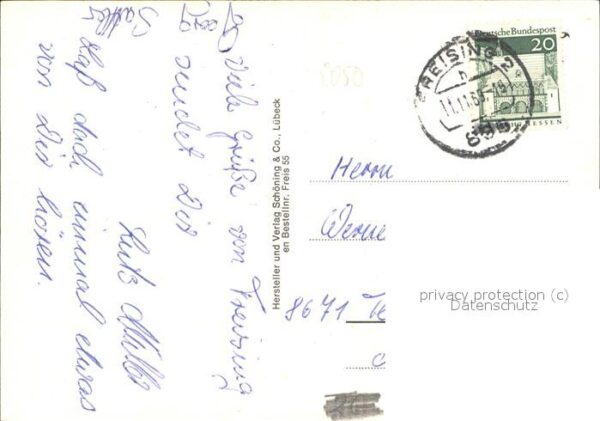 Viele Grüße von Freising
sendet Dir
Lutz Müller
Laß doch einmal etwas
von Dir hören.
Hersteller und Verlag Schöning & Co., Lübeck
en Bestellnr. Freis 55
Deutsche Bundespost
20
FREISING 2
Herrn
Werne
8671 Te
privacy protection (c)
Datenschutz